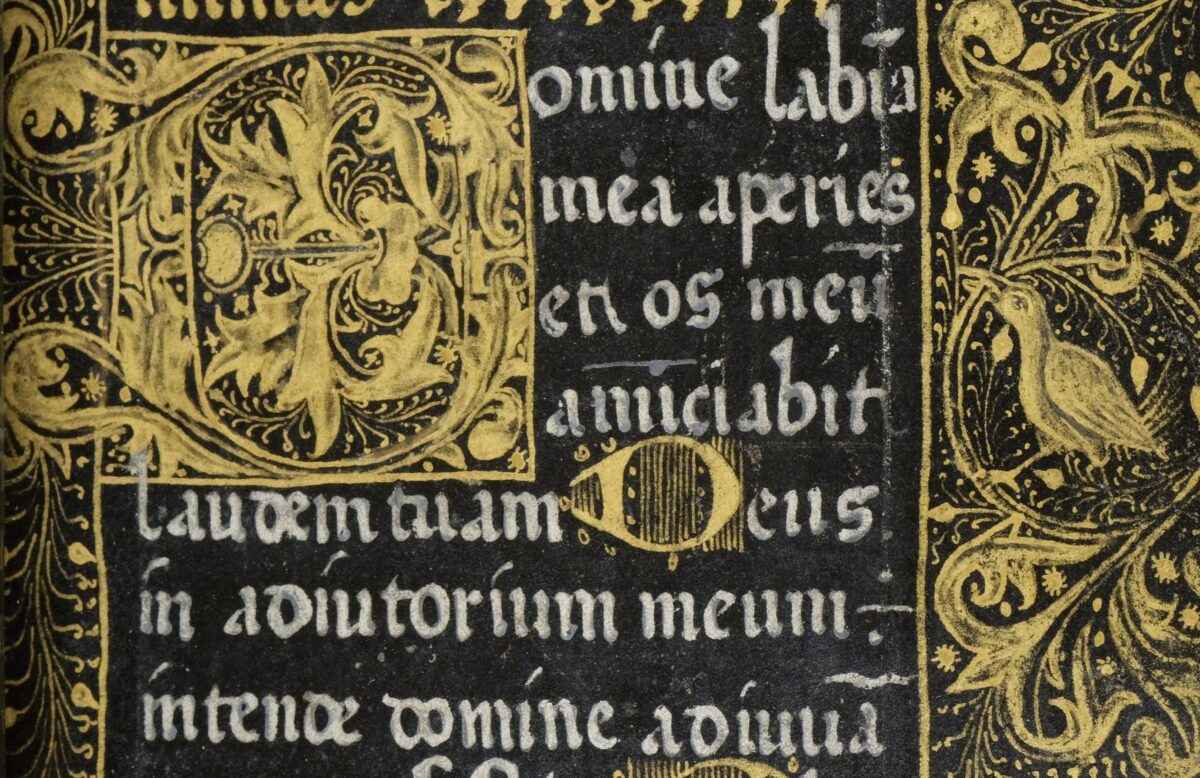 Domine labia
mea aperies
et os meū
anūciabit
laudem tuam Deus
in adiutorium meum :
intende domine adiuuā